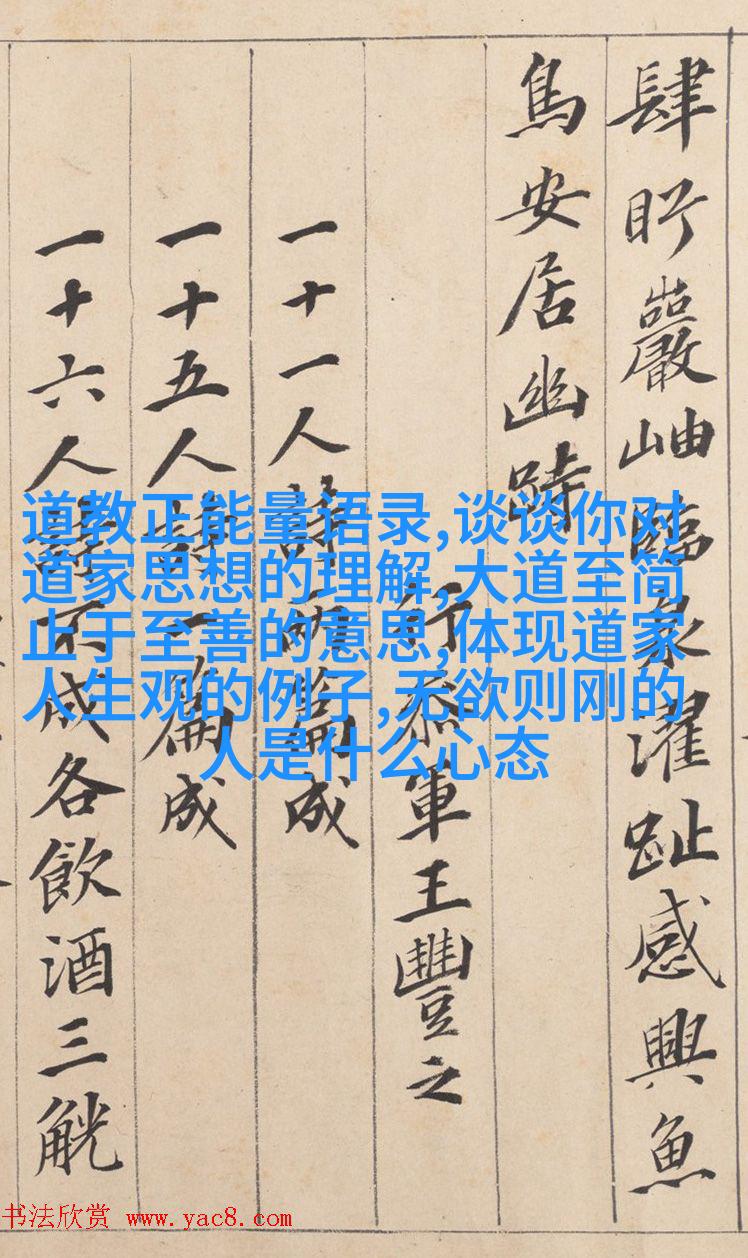 肆眄巖岫臨泉濯趾感興魚
鳥安居幽跱
行叅軍王豐之
一十一人詩兩篇成
一十五人詩一篇成
一十六人詩不成各飲酒三觥
道教正能量语录,谈谈你对
道家思想的理解,大道至简
止于至善的意思,体现道家
人生观的例子,无欲则刚的
人是什么心态
书法欣赏 www.yac8.com